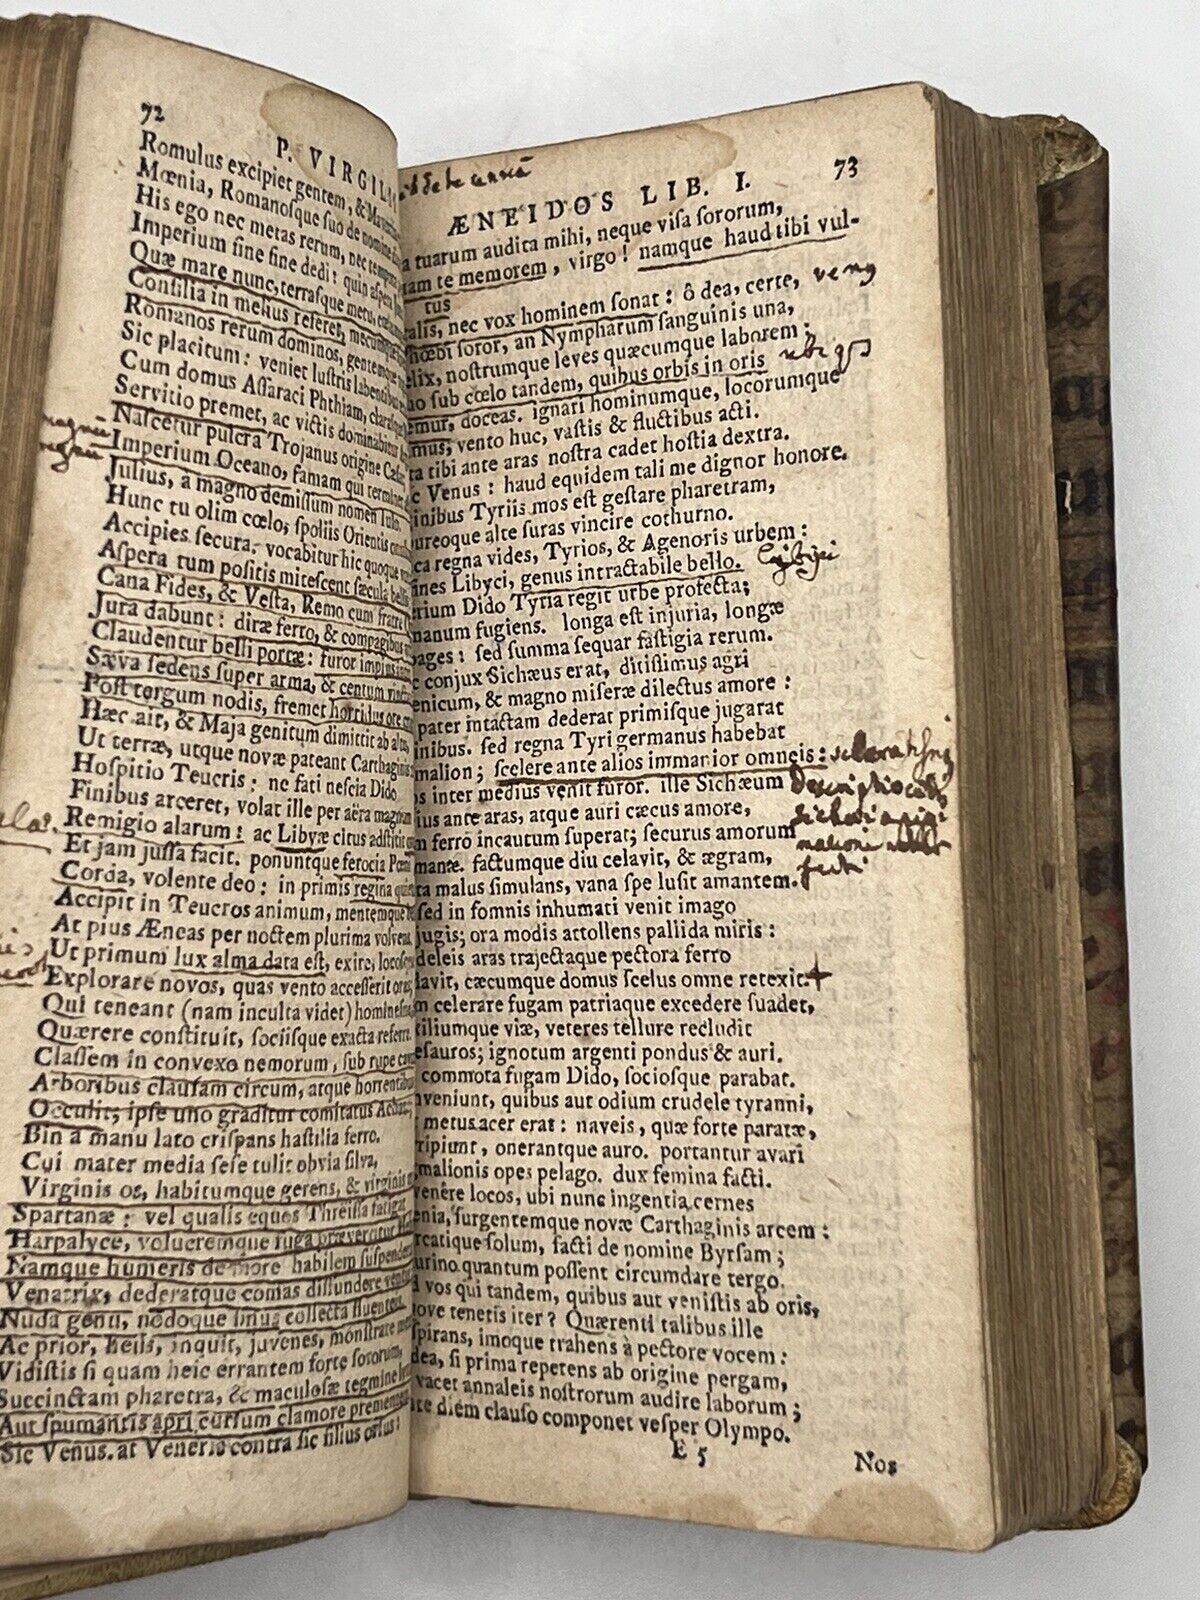 72
P. VIRGIL
Romulus excipiet gentem, & Mavo
Mœnia, Romanoſque ſuo de nomine
His ego nec metas rerum, nec tempo
Imperium ſine fine dedi: quin aſpera
Quæ mare nunc, terraſque metu,
Conſilia in melius referet, mecumque
Romanos rerum dominos, gentemque
Sic placitum: veniet luſtris labentibus
Cum domus Aſſaraci Phthiam, claraſque
Servitio premet, ac victis dominabitur
Naſcetur pulcra Trojanus origine Cæſar
Imperium Oceano, famam qui terminet
Julius, a magno demiſſum nomen Iulo.
Hunc tu olim cœlo, ſpoliis Orientis
Accipies ſecura. vocabitur hic quoque
Aſpera tum poſitis miteſcent ſæcula bellis
Cana Fides, & Veſta, Remo cum fratre
Jura dabunt: diræ ferro, & compagibus
Claudentur belli portæ: furor impius
Sæva ſedens ſuper arma, & centum vinctus
Poſt tergum nodis, fremet horridus ore
Hæc ait, & Maja genitum dimittit ab alto,
Ut terræ, utque novæ pateant Carthaginis
Hoſpitio Teucris: ne fati neſcia Dido
Finibus arceret, volat ille per aëra magnum
Remigio alarum: ac Libyæ citus adſtitit
Et jam juſſa facit. ponuntque ferocia Pœni
Corda, volente deo: in primis regina
Accipit in Teucros animum, mentemque
At pius Æneas per noctem plurima volvens
Ut primum lux alma data eſt, exire, locoſque
Explorare novos, quas vento acceſſerit oras;
Qui teneant (nam inculta videt) hominesne
Quærere conſtituit, ſociiſque exacta referre.
Claſſem in convexo nemorum, ſub rupe
Arboribus clauſam circum, atque horrentibus
Occulit; ipſe uno graditur comitatus
Bin a manu lato criſpans haſtilia ferro.
Cui mater media ſeſe tulit obvia ſilva,
Virginis os, habitumque gerens, & virginis
Spartanæ: vel qualis eques Threiſſa fatigat
Harpalyce, volucremque fuga prævertitur
Namque humeris de more habilem ſuſpenderat
Venatrix, dederatque comas diffundere ventis
Nuda genu, nodoque ſinus collecta fluentes.
Ac prior, heus, inquit, juvenes, monſtrate
Vidiſtis ſi quam heic errantem forte ſororum,
Succinctam pharetra, & maculoſæ tegmine
Aut ſpumantis apri curſum clamore prementem
Sic Venus. at Veneris contra ſic filius orſus:
73
ÆNEIDOS LIB. I.
a tuarum audita mihi, neque viſa ſororum,
am te memorem, virgo! namque haud tibi vul-
tus
alis, nec vox hominem ſonat: ô dea, certe,
hœbi ſoror, an Nympharum ſanguinis una,
elix, noſtrumque leves quæcumque laborem;
o ſub cœlo tandem, quibus orbis in oris
emur, doceas. ignari hominumque, locorumque
mus, vento huc, vaſtis & fluctibus acti.
ta tibi ante aras noſtra cadet hoſtia dextra.
c Venus: haud equidem tali me dignor honore.
inibus Tyriis mos eſt geſtare pharetram,
ureoque alte ſuras vincire cothurno.
ca regna vides, Tyrios, & Agenoris urbem:
ines Libyci, genus intractabile bello.
rium Dido Tyria regit urbe profecta;
manum fugiens. longa eſt injuria, longæ
ages: ſed ſumma ſequar faſtigia rerum.
c conjux Sichæus erat, ditiſſimus agri
enicum, & magno miſeræ dilectus amore:
pater intactam dederat primiſque jugarat
inibus. ſed regna Tyri germanus habebat
malion; ſcelere ante alios immanior omneis:
s inter medius venit furor. ille Sichæum
ius ante aras, atque auri cæcus amore,
m ferro incautum ſuperat; ſecurus amorum
manæ. factumque diu celavit, & ægram,
ta malus ſimulans, vana ſpe luſit amantem.
ſed in ſomnis inhumati venit imago
jugis; ora modis attollens pallida miris:
deleis aras trajectaque pectora ferro
avit, cæcumque domus ſcelus omne retexit.
m celerare fugam patriaque excedere ſuadet,
iliumque viæ, veteres tellure recludit
eſauros; ignotum argenti pondus & auri.
commota fugam Dido, ſociosque parabat.
nveniunt, quibus aut odium crudele tyranni,
metus acer erat: naveis, quæ forte paratæ,
ripiunt, onerantque auro. portantur avari
malionis opes pelago. dux femina facti.
venêre locos, ubi nunc ingentia cernes
enia, ſurgentemque novæ Carthaginis arcem:
rcatique ſolum, facti de nomine Byrſam;
urino quantum poſſent circumdare tergo.
d vos qui tandem, quibus aut veniſtis ab oris,
ove tenetis iter? Quærenti talibus ille
ſpirans, imoque trahens à pectore vocem:
dea, ſi prima repetens ab origine pergam,
vacet annaleis noſtrorum audire laborum;
te diem clauſo componet veſper Olympo.
E 5
Nos